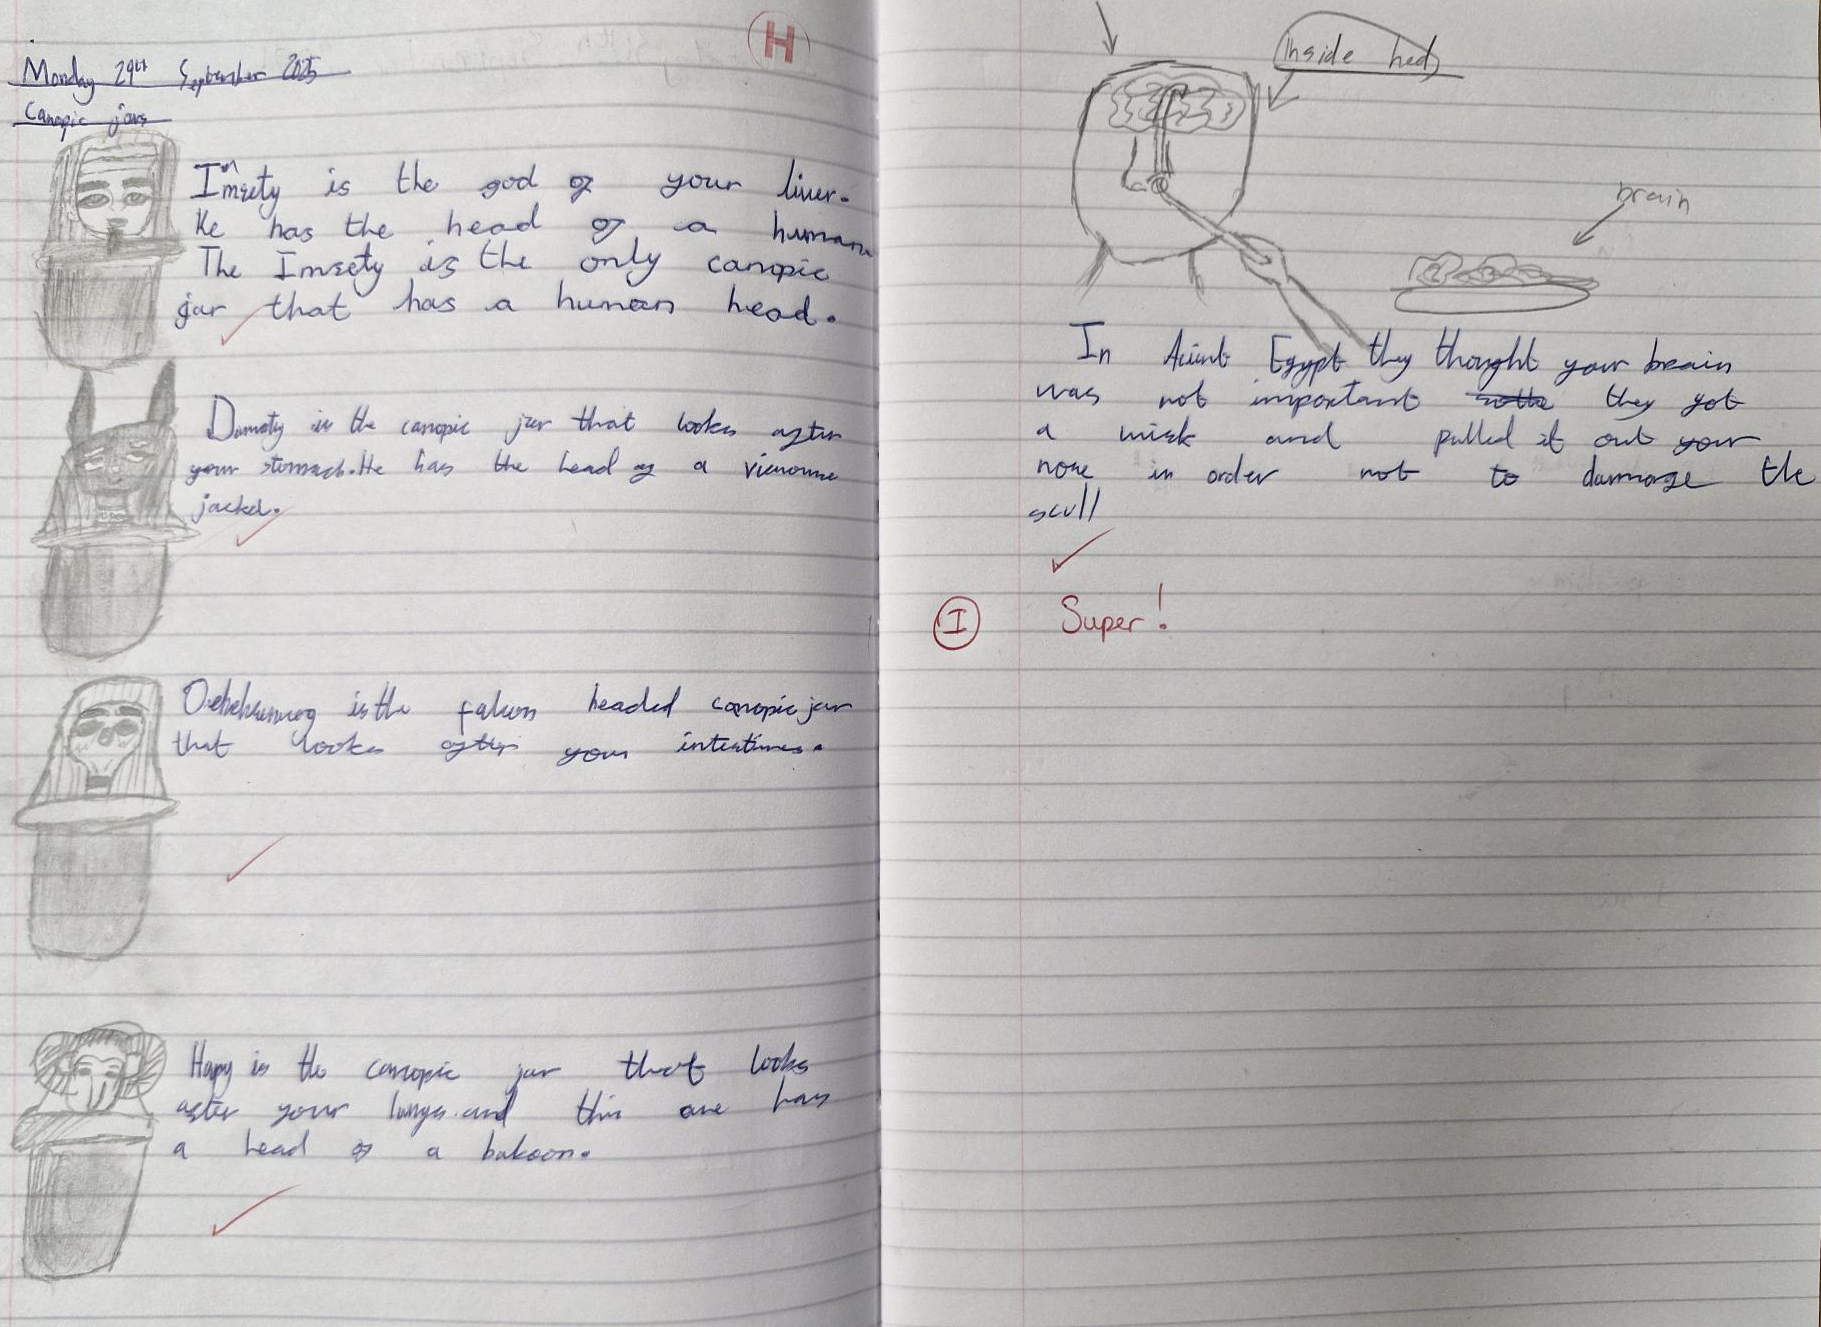 H
Monday 29th September 2025
Canopic jars
Imsety is the god of your liver.
He has the head of a human
The Imsety is the only canopic
jar that has a human head.
Dumoty is the canopic jar that looks after
your stomach. He has the head of a
jackel.
is the falcon headed canopic jar
that looks after your intestines.
Hapy is the canopic jar that looks
after your lungs. and this one has
a head of a bakoon.
Inside head
brain
In Aiunt Egypt they thought your brain
was not important they got
a and pulled it out your
nose in order not to dammage the
scull
I
Super!